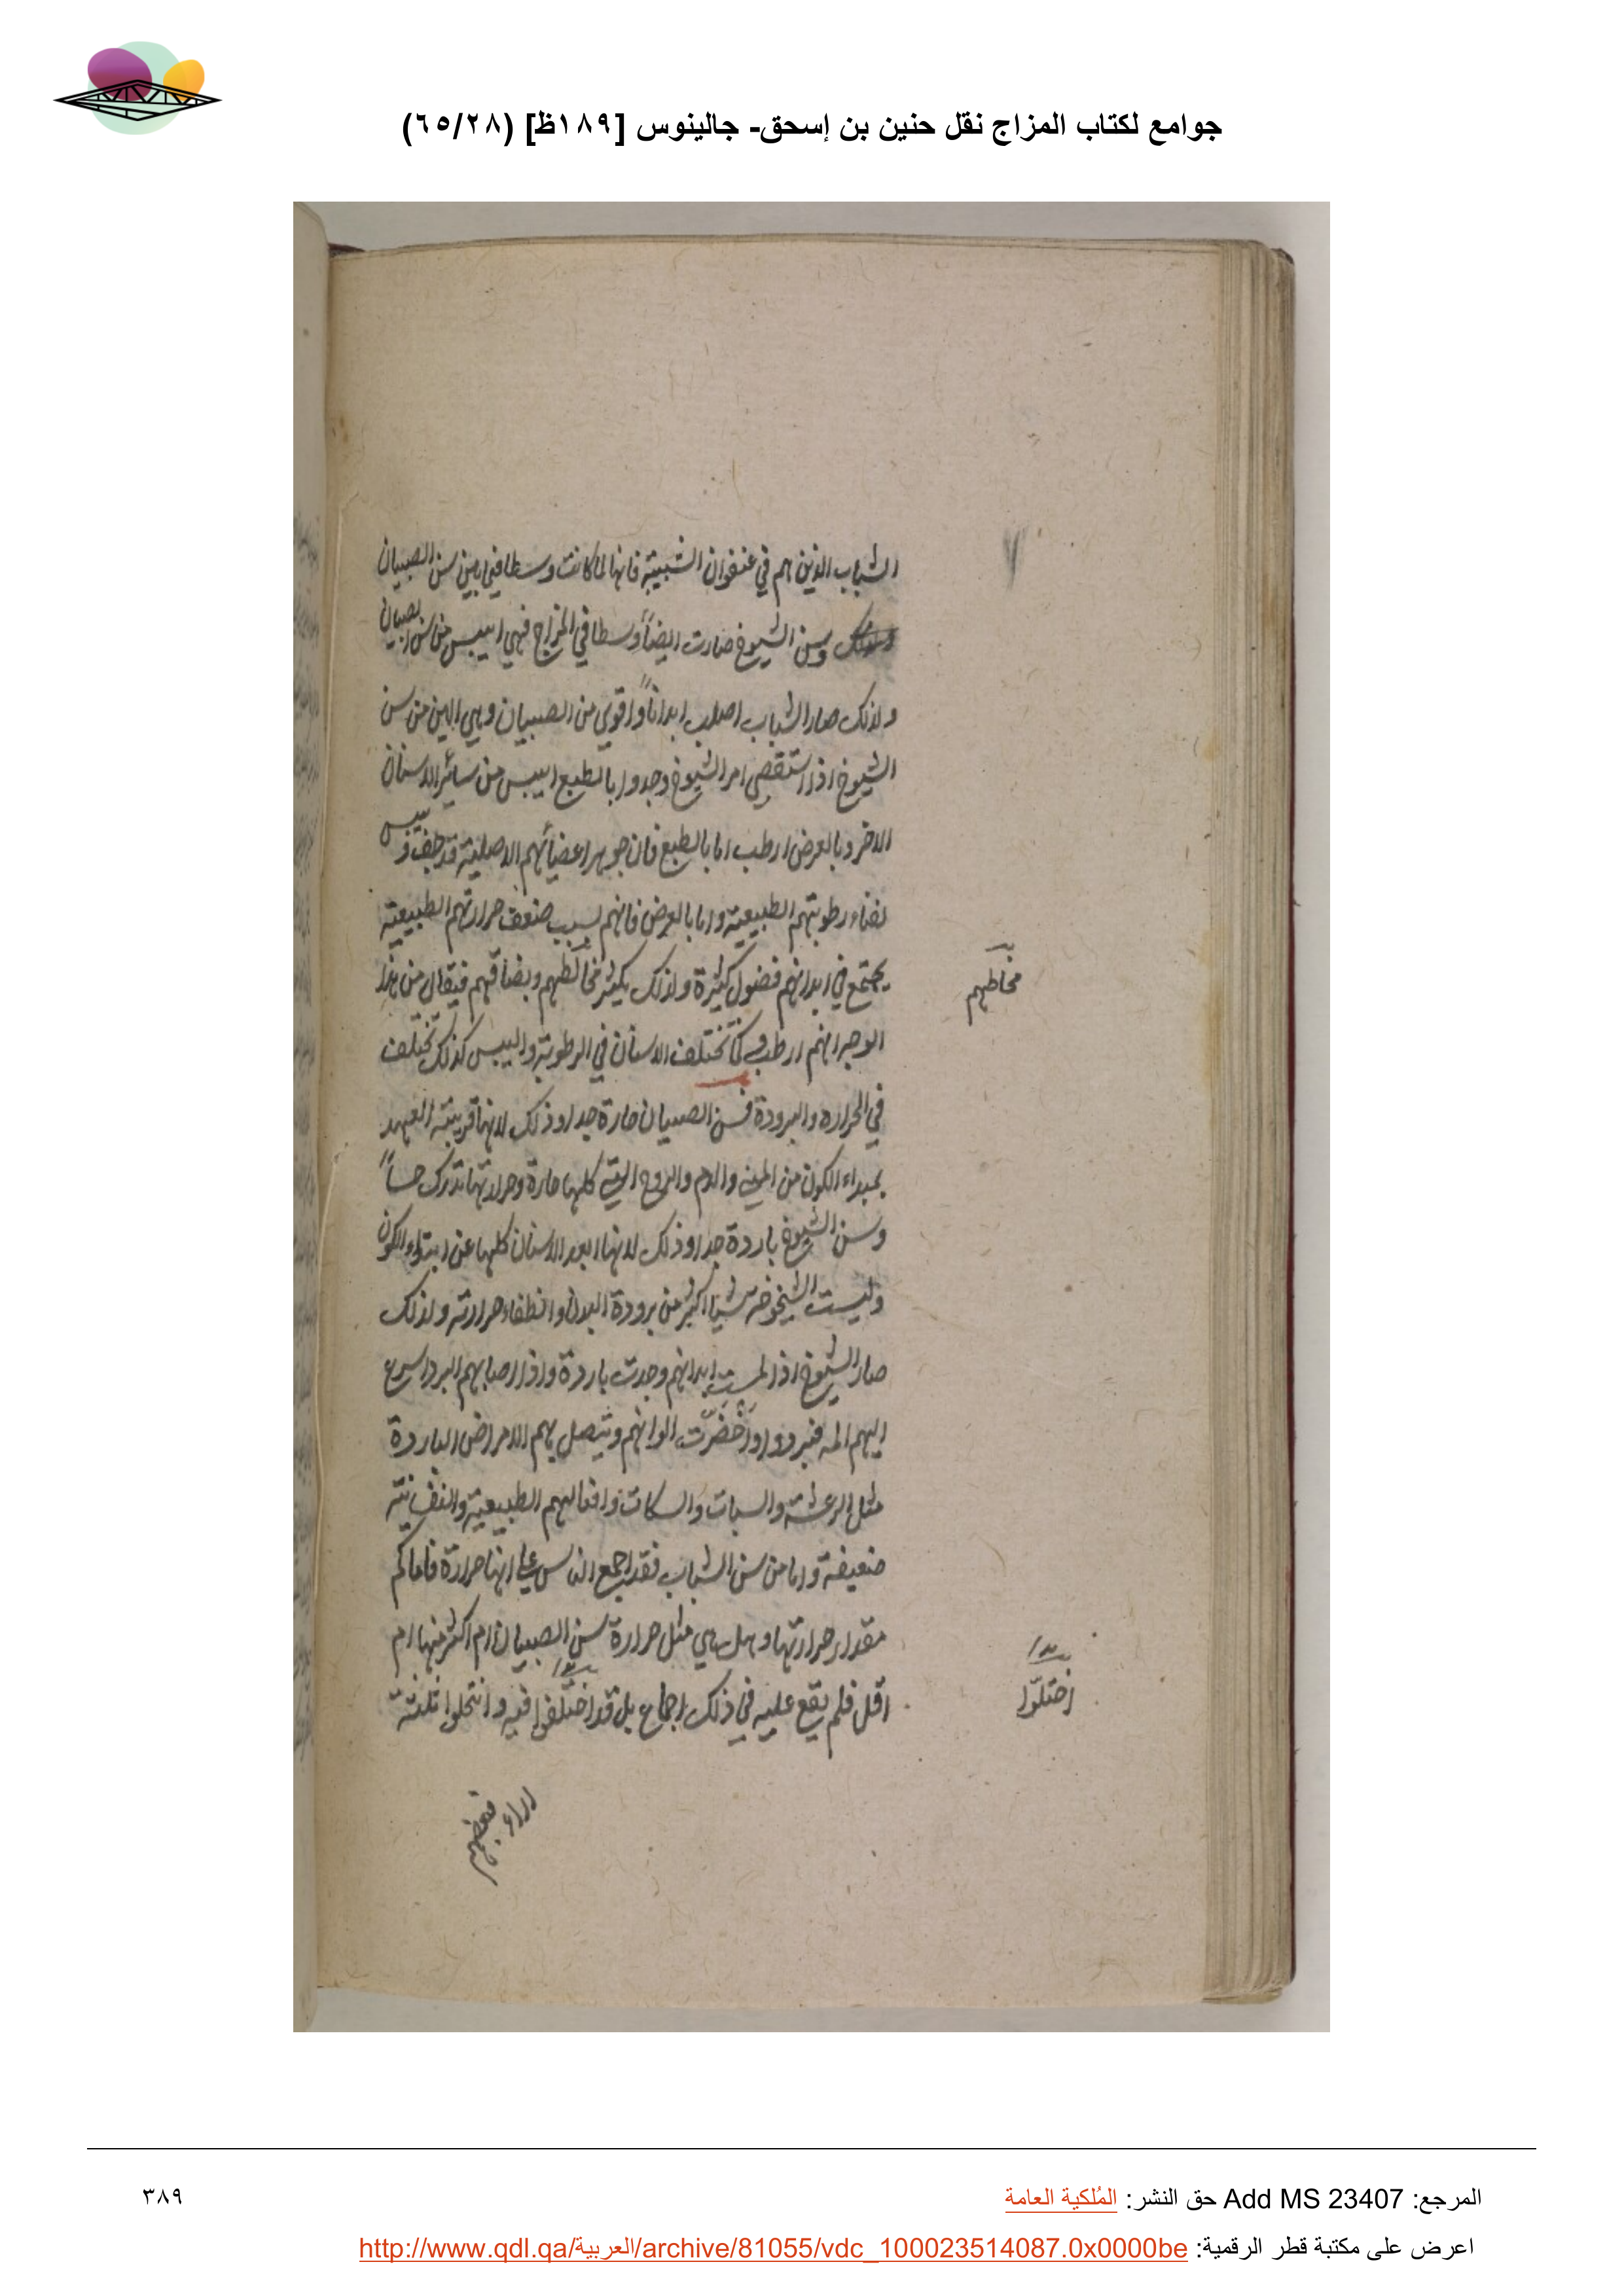 جوامع لكتاب المزاج نقل حنين بن إسحق- جالينوس [١٨٩ظ] (٦٥/٢٨)
الشباب الذين هم في عنفوان الشبيبة فانها لما كانت وسطا فيما بين سن الصبيان
وسن الشيوخ صارت ايضاً وسطا في المزاج فهي ايبس من سن الصبيان
ولذلك صار الشباب اصلب ابداناً واقوي من الصبيان وهي الين من سن
الشيوخ اذا استقصي امر الشيوخ وجدوا بالطبع ايبس من سائر الاسنان
الاخر وبالعرض ارطب اما بالطبع فان جوهر اعضائهم الاصلية قد جف ويبس
لفناء رطوبتهم الطبيعية واما بالعرض فانهم بسبب ضعف حرارتهم الطبيعية
يجتمع في ابدانهم فضول كثيرة ولذلك يكثر مخاطهم وبصاقهم فيقال من هذا
مخاطهم
الوجه انهم ارطب وكما تختلف الاسنان في الرطوبة واليبس كذلك تختلف
في الحراره والبرودة فسن الصبيان حارة جدا وذلك لانها قريبة العهد
بمبداء الكون من المني والدم والروح التي كلها حارة وحرارتها تدرك حساً
وسن الشيوخ باردة جدا وذلك لانها ابعد الاسنان كلها عن ابتداء الكون
وليست الشيخوخه شيا اكثر من برودة البدن وانطفاء حرارته ولذلك
صار الشيوخ اذا لمست ابدانهم وجدت باردة واذا اصابهم البرد اسرع
اليهم المه فبردوا واخضرّت الوانهم ويتصل بهم الامراض الباردة
مثل الرعشة والسبات والسكات وافعالهم الطبيعية والنفسانية
ضعيفة واما من سن الشباب فقد اجمع الناس علي انها حارة فاما كم
مقدار حرارتها وهل هي مثل حرارة سن الصبيان ام اكثر منها ام
اقل فلم يقع عليه في ذلك اجماع بل قد اختلفوا فيه وانتحلوا ثلثة
اختلوا
اراء فبعضهم
المرجع: Add MS 23407 حق النشر: المُلكية العامة
٣٨٩
اعرض على مكتبة قطر الرقمية: http://www.qdl.qa/العربية/archive/81055/vdc_100023514087.0x0000be